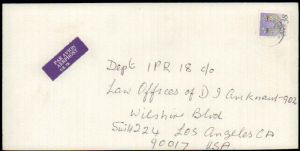 PAR AVION
AEROPRINT
Dept IPR 18 c/o
Law Offices of D J Anknaut-902
Wilshire Blvd
Suite 224 Los Angeles CA
90017 USA